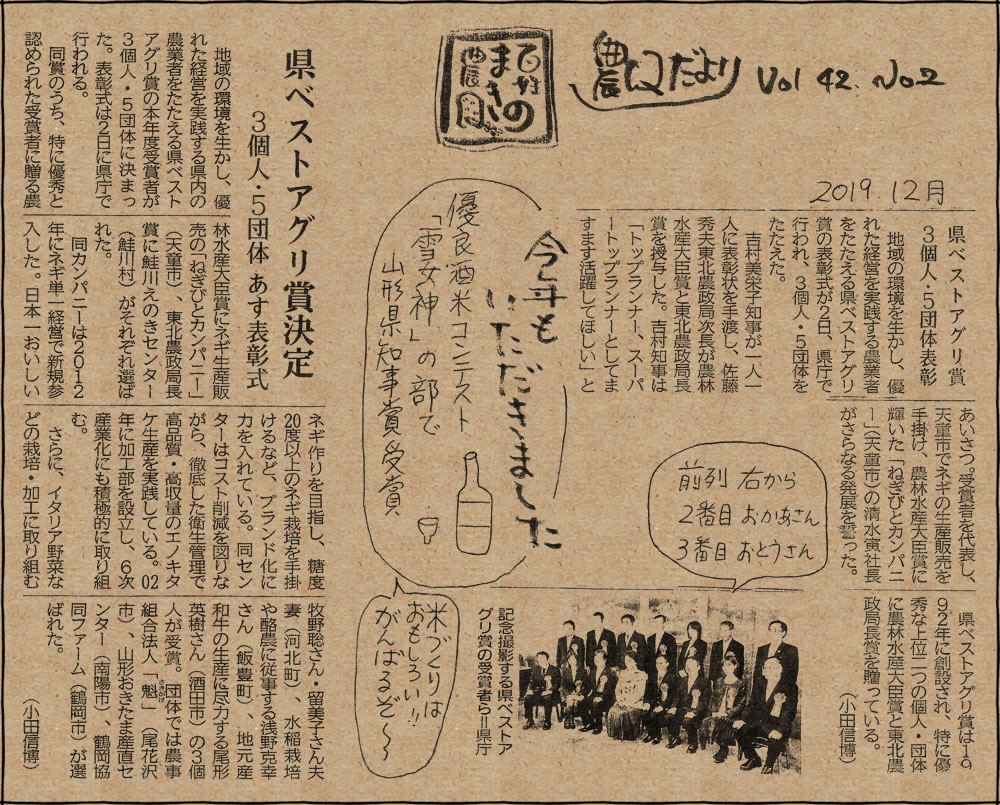 百姓
まきの
農園
農INだより Vol 42. No2
2019. 12月
県ベストアグリ賞
3個人・5団体表彰
地域の環境を生かし、優
れた経営を実践する農業者
をたたえる県ベストアグリ
賞の表彰式が2日、県庁で
行われ、3個人・5団体を
たたえた。
吉村美栄子知事が一人一
人に表彰状を手渡し、佐藤
秀夫東北農政局次長が農林
水産大臣賞と東北農政局長
賞を授与した。吉村知事は
「トップランナー、スーパ
ートップランナーとしてま
すます活躍してほしい」と
あいさつ。受賞者を代表し、
天童市でネギの生産販売を
手掛け、農林水産大臣賞に
輝いた「ねぎびとカンパニ
ー」(天童市)の清水寅社長
がさらなる発展を誓った。
県ベストアグリ賞は19
92年に創設され、特に優
秀な上位二つの個人・団体
に農林水産大臣賞と東北農
政局長賞を贈っている。
(小田信博)
前列 右から
2番目 おかあさん
3番目 おとうさん
記念撮影する県ベストア
グリ賞の受賞者ら=県庁
今年も
いただきました
優良酒米コンテスト
「雪女神」の部で
山形県知事賞受賞
米づくりは
おもしろい!!
がんばるぞ〜
県ベストアグリ賞決定
3個人・5団体 あす表彰式
地域の環境を生かし、優
れた経営を実践する県内の
農業者をたたえる県ベスト
アグリ賞の本年度受賞者が
3個人・5団体に決まっ
た。表彰式は2日に県庁で
行われる。
同賞のうち、特に優秀と
認められた受賞者に贈る農
林水産大臣賞にネギ生産販
売の「ねぎびとカンパニー」
(天童市)、東北農政局長
賞に鮭川えのきセンター
(鮭川村)がそれぞれ選ば
れた。
同カンパニーは2012
年にネギ単一経営で新規参
入した。日本一おいしい
ネギ作りを目指し、糖度
20度以上のネギ栽培を手掛
けるなど、ブランド化に
力を入れている。同セン
ターはコスト削減を図りな
がら、徹底した衛生管理で
高品質・高収量のエノキタ
ケ生産を実践している。02
年に加工部を設立し、6次
産業化にも積極的に取り組
む。
さらに、イタリア野菜な
どの栽培・加工に取り組む
牧野聡さん・留美子さん夫
妻(河北町)、水稲栽培
や酪農に従事する浅野克幸
さん(飯豊町)、地元産
和牛の生産に尽力する尾形
英樹さん(酒田市)の3個
人が受賞。団体では農事
組合法人「魁」(尾花沢
さきがけ
市)、山形おきたま産直セ
ンター(南陽市)、鶴岡協
同ファーム(鶴岡市)が選
ばれた。
(小田信博)